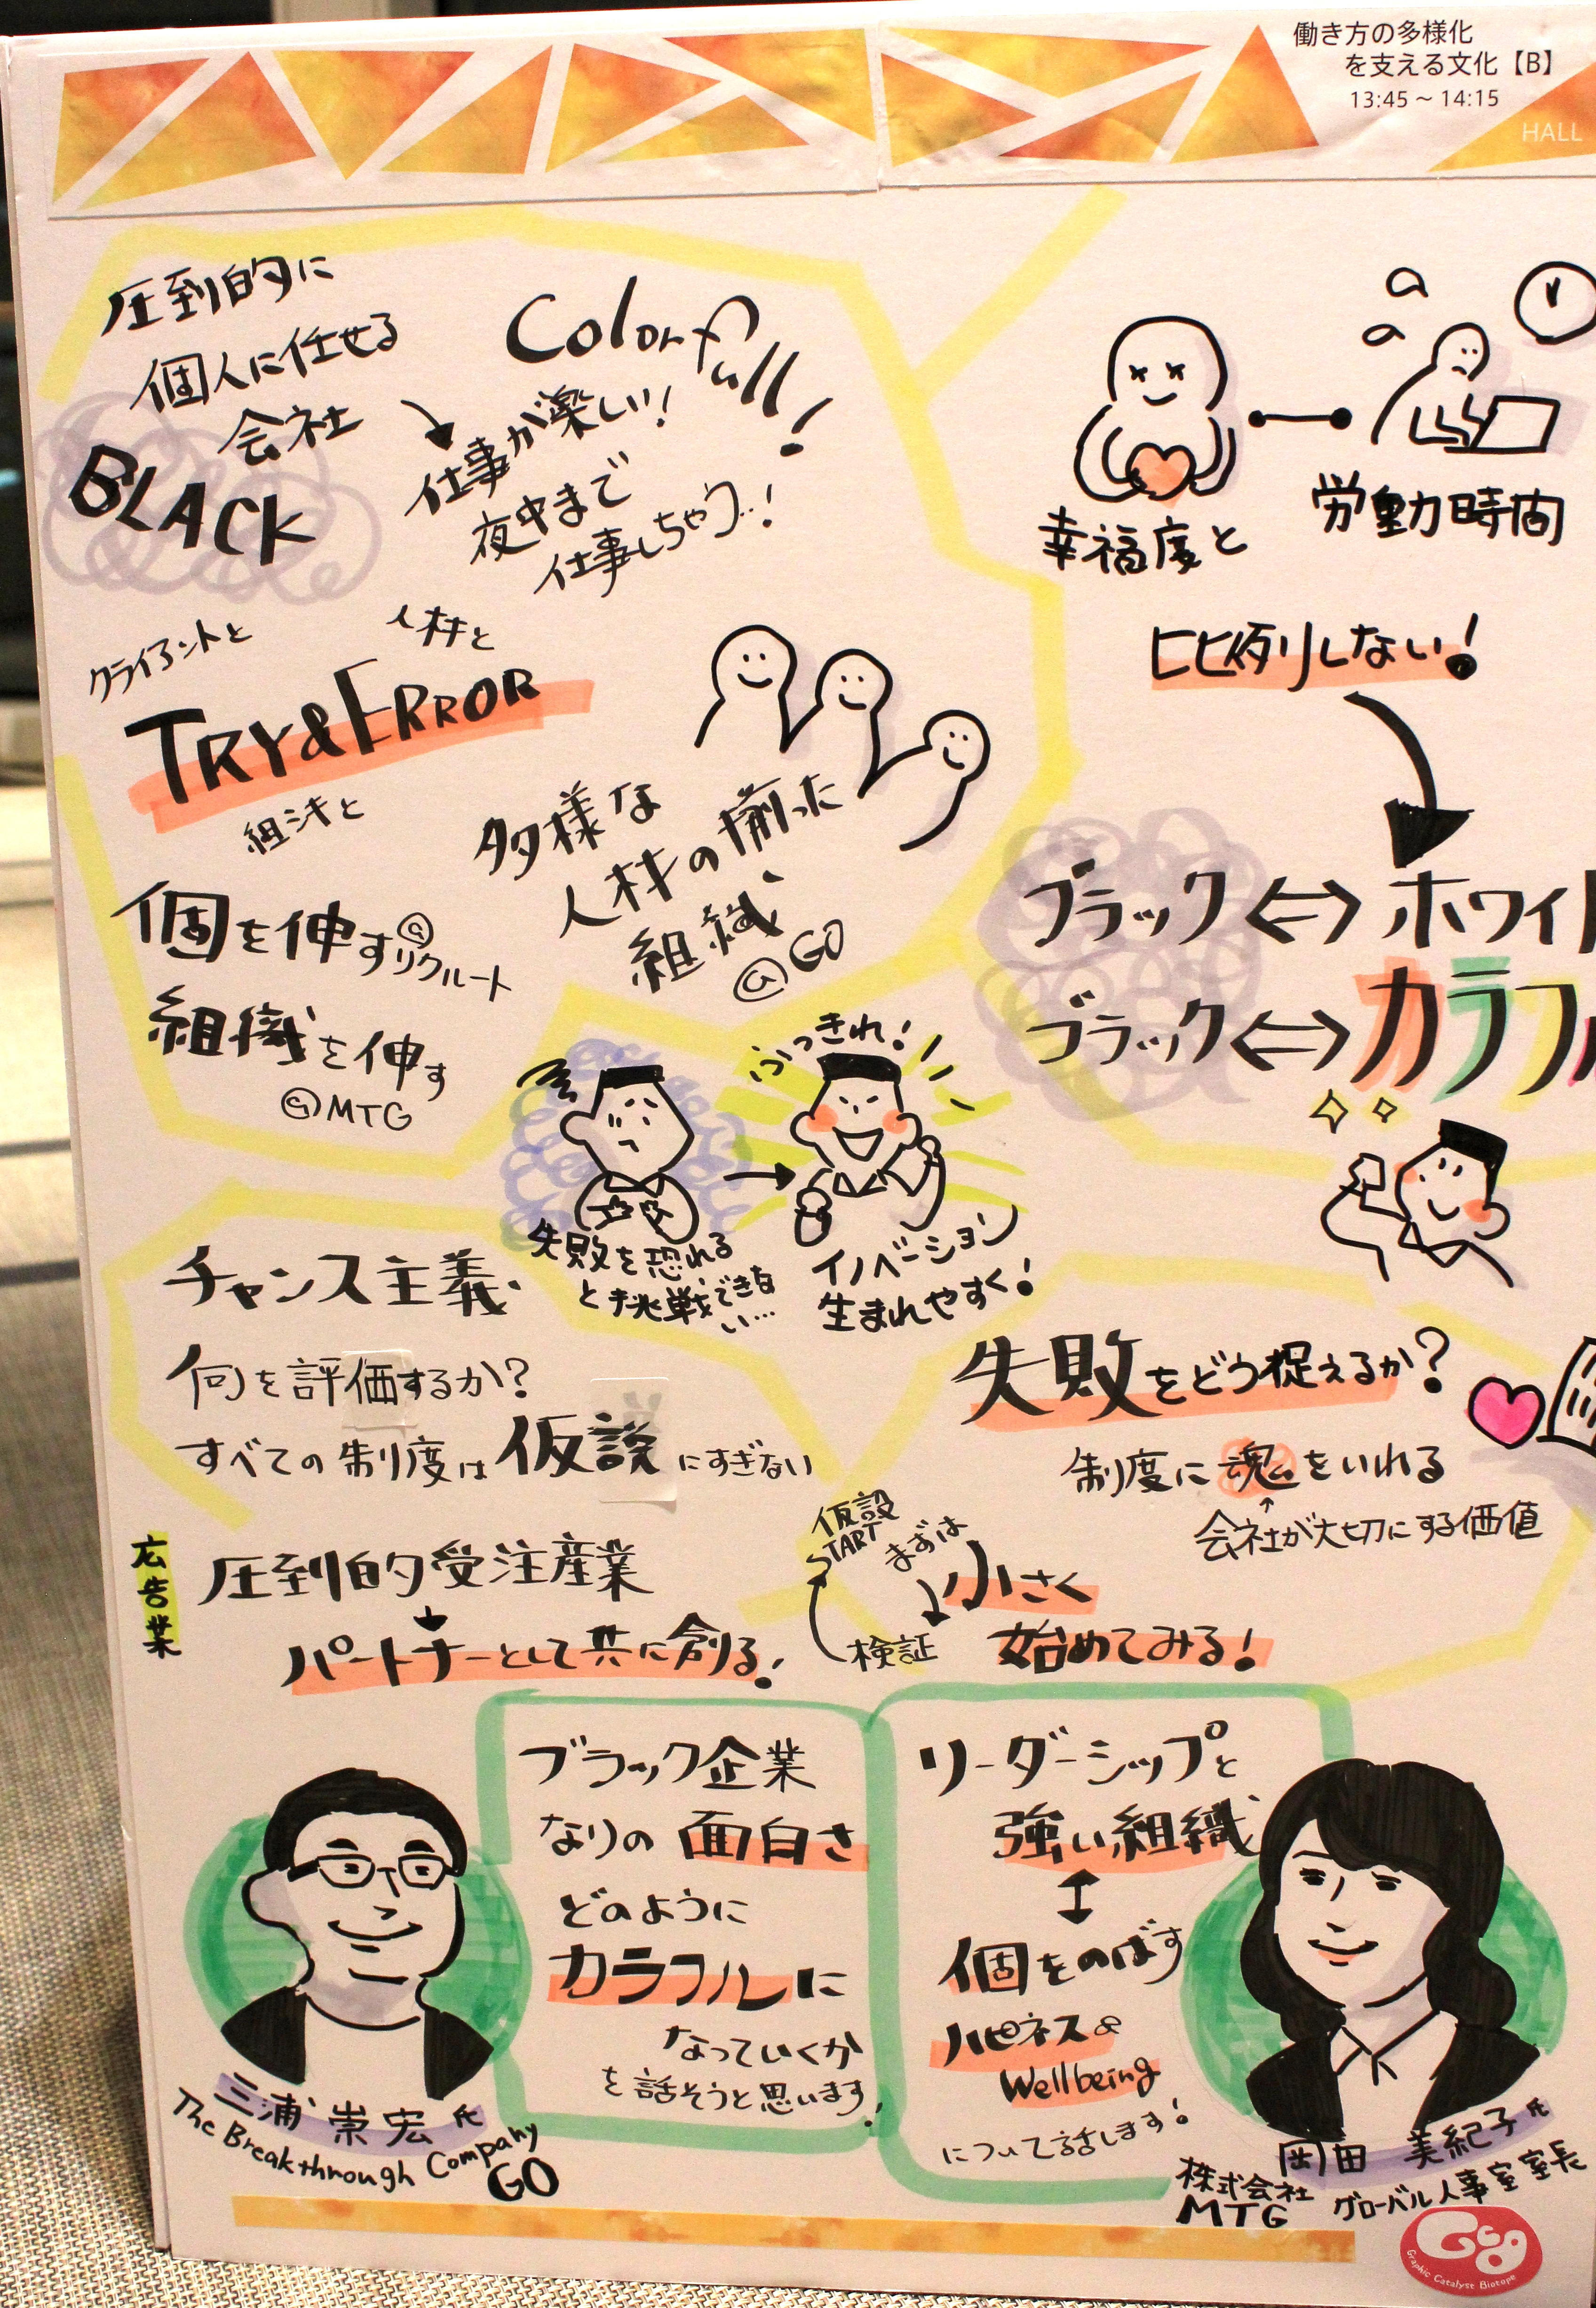 働き方の多様化
を支える文化【B】
13:45～14:15
HALL
圧倒的に
個人に任せる
会社
BLACK
Colorfull!
仕事が楽しい!
夜中まで
仕事しちゃう..!
クライアントと
人材と
TRY&ERROR
組シキと
多様な
人材の揃った
組織
@GO
個を伸す@リクルート
組織を伸す
@MTG
幸福度と
労働時間
比例しない!
ブラック⇔ホワイ
ブラック⇔カラフ
失敗を恐れる
と挑戦できな
い…
ふっきれ!
イノベーション
生まれやすく!
チャンス主義
何を評価するか?
すべての制度は仮説にすぎない
失敗をどう捉えるか?
制度に魂をいれる
↑
会社が大切にする価値
広告業
圧倒的受注産業
パートナーとして共に創る!
仮設
START
検証
まずは
小さく
始めてみる!
ブラック企業
なりの面白さ
どのように
カラフルに
なっていくか
を話そうと思います!
三浦崇宏氏
The Breakthrough Company
GO
リーダーシップと
強い組織
↕
個をのばす
ハピネス&
Wellbeing
について話します!
岡田 美紀子氏
株式会社
MTG
グローバル人事室室長
GCB
Graphic Catalyst Biotope